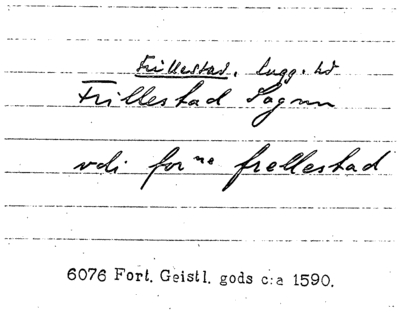 Frillestad. Lugg. hd
Frillestad Sognn
vdi forne frellestad
6076 Fort. Geistl. gods c:a 1590.